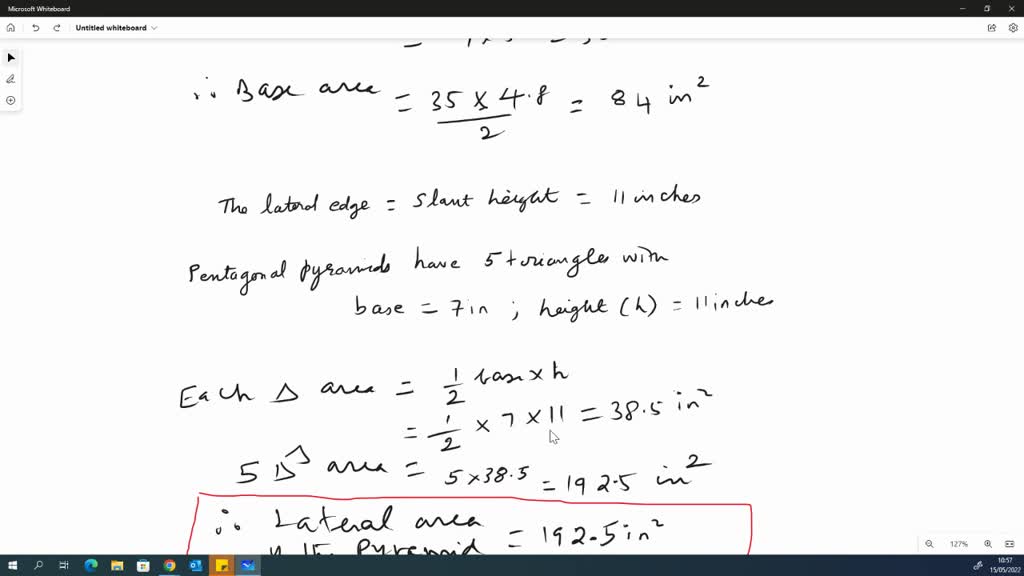 Microsoft Whiteboard
Untitled whiteboard
∴ Base area = 35 x 4.8 / 2 = 84 in²
The lateral edge = slant height = 11 inches
Pentagonal pyramids have 5 triangles with
base = 7in ; height (h) = 11inches
Each Δ area = 1/2 base x h
= 1/2 x 7 x 11 = 38.5 in²
5 Δˢ area = 5 x 38.5 = 192.5 in²
∴ Lateral area = 192.5 in²
Pyramid
127%
10:57
15/05/2022